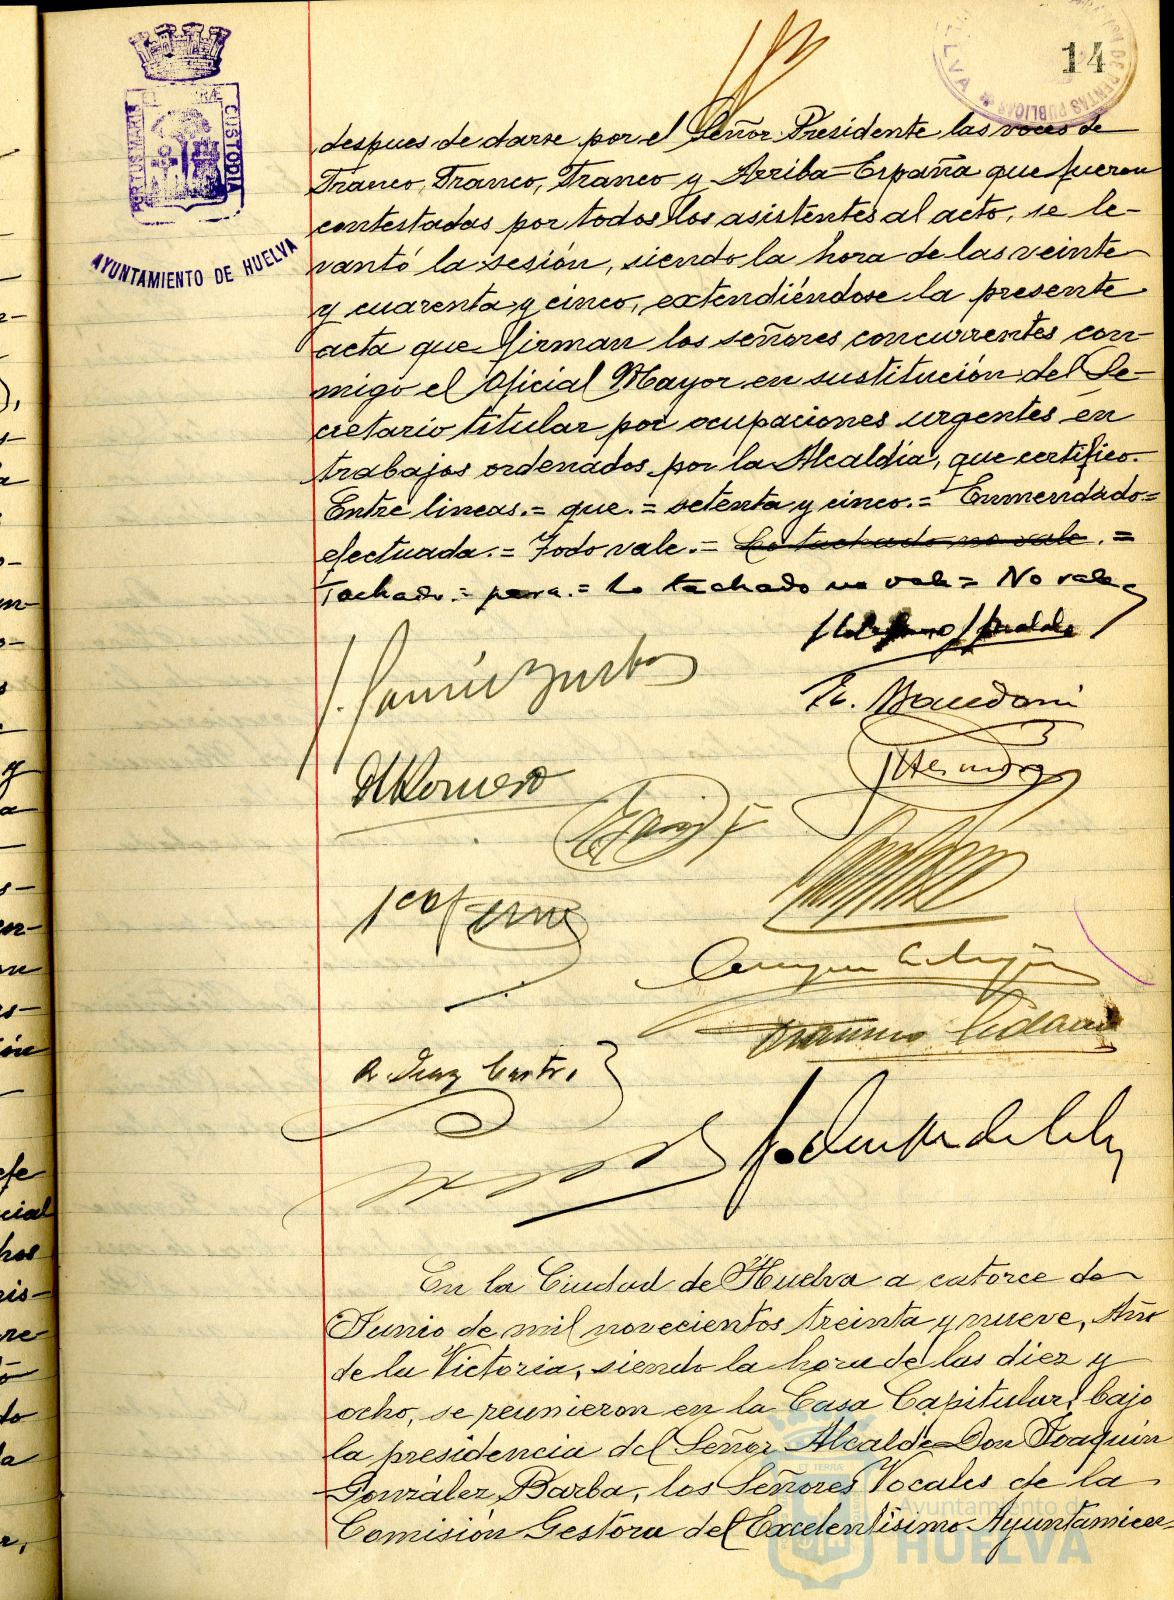 14
PORTUS MARIS ET TERRÆ CUSTODIA
AYUNTAMIENTO DE HUELVA
despues de darse por el Señor Presidente las voces de
Franco, Franco, Franco y Arriba España que fueron
contestadas por todos los asistentes al acto, se le-
vantó la sesión, siendo la hora de las veinte
y cuarenta y cinco, extendiéndose la presente
acta que firman los señores concurrentes con-
migo el Oficial Mayor en sustitución del Se-
cretario titular por ocupaciones urgentes en
trabajos ordenados por la Alcaldia, que certifico.
Entre lineas.= que.= setenta y cinco.= Enmendado=
efectuada.= Todo vale.= Lo tachado no vale.=
Tachado.= para.= Lo tachado no vale= No vale
J. González Barba
H Romero
A. Diaz Castro
En la Ciudad de Huelva a catorce de
Junio de mil novecientos treinta y nueve, Año
de la Victoria, siendo la hora de las diez y
ocho, se reunieron en la Casa Capitular, bajo
la presidencia del Señor Alcalde Don Joaquín
González Barba, los Señores Vocales de la
Comisión Gestora del Excelentísimo Ayuntamien-
Ayuntamiento de
HUELVA